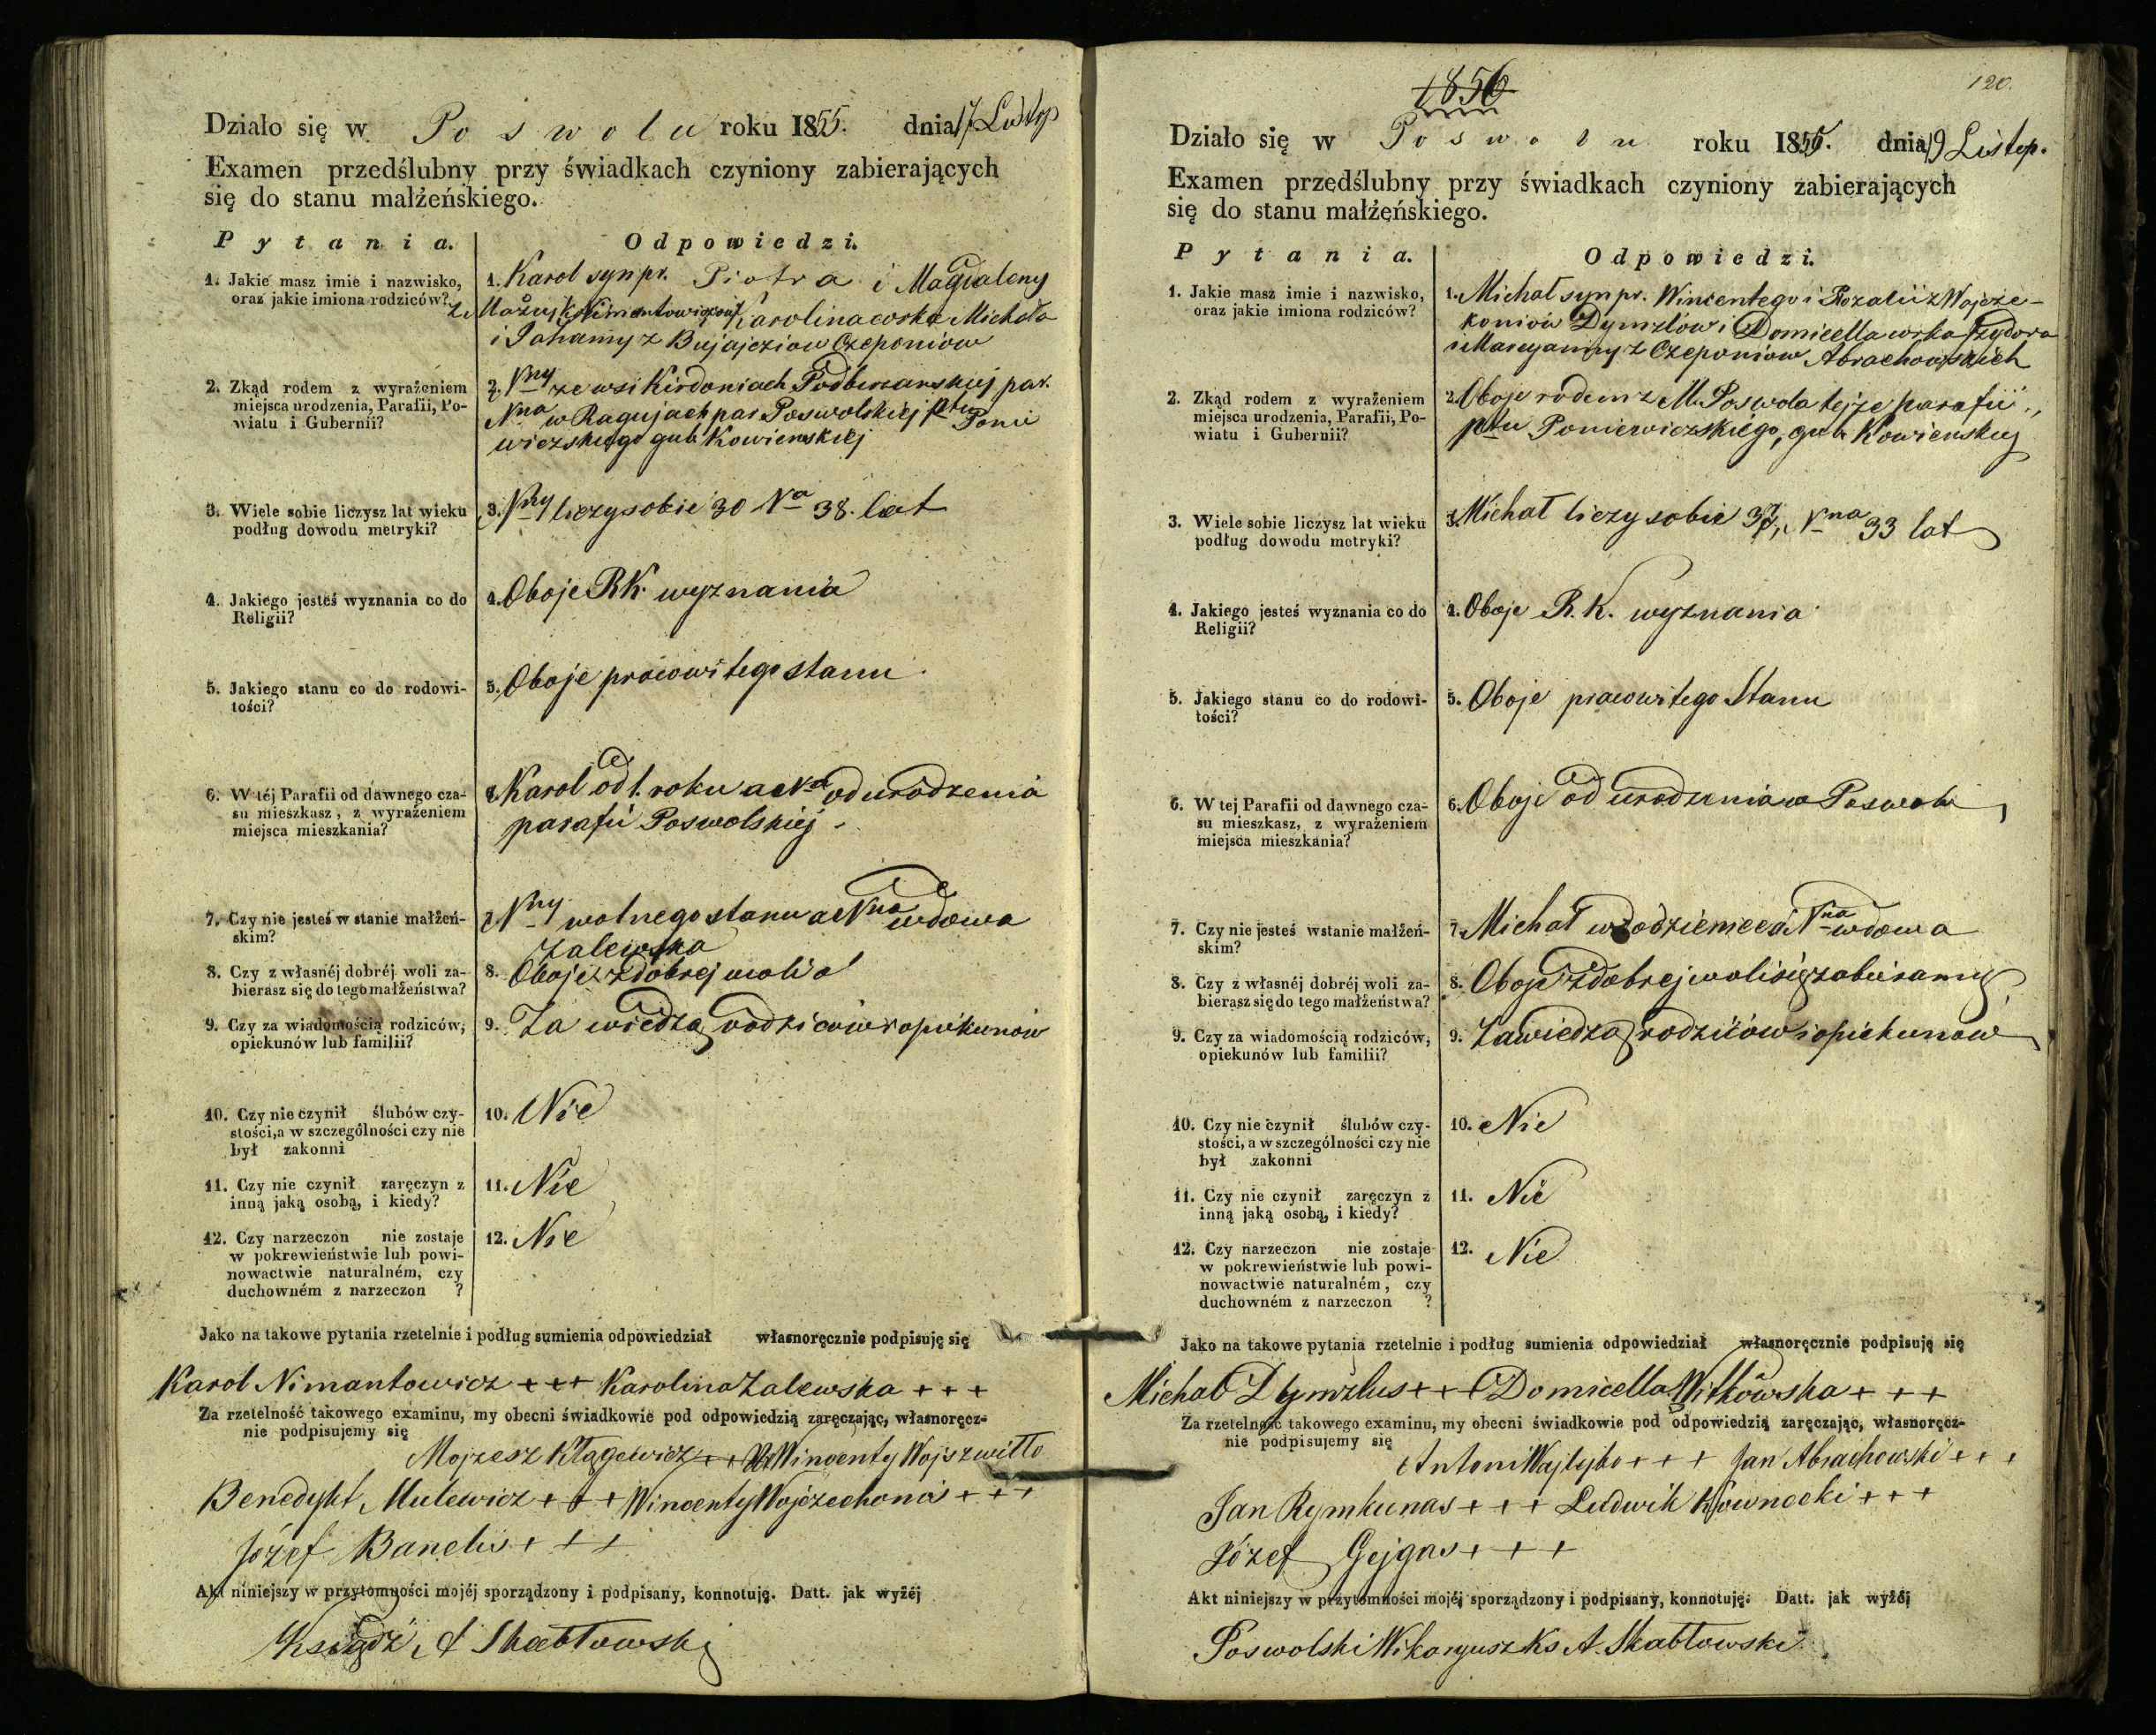 Działo się w Poswolu roku 1855. dnia 17 Listop
Examen przedślubny przy świadkach czyniony zabierających
się do stanu małżeńskiego.
Pytania. Odpowiedzi.
1. Jakie masz imie i nazwisko,
oraz jakie imiona rodziców?
1. Karol syn pr. Piotra i Magdaleny
Nimantowiczow Karolina corka Michała
i Johanny z Bujajeziow Czeponiow
2. Zkąd rodem z wyrażeniem
miejsca urodzenia, Parafii, Po-
wiatu i Gubernii?
2. Nny ze wsi Kirdoniach Podbirzanskiej par.
Nna w Ragujach par Poswolskiej ptu Ponie
wiezskiego gub Kowienskiej
3. Wiele sobie liczysz lat wieku
podług dowodu metryki?
3. Nny liczy sobie 30 Na 38. lat
4. Jakiego jesteś wyznania co do
Religii?
4. Oboje R K. wyznania
5. Jakiego stanu co do rodowi-
tości?
5. Oboje pracowitego stanu
6. W téj Parafii od dawnego cza-
su mieszkasz, z wyrażeniem
miejsca mieszkania?
6 Karol od 1. roku a Nna od urodzenia
parafii Poswolskiej
7. Czy nie jesteś w stanie małżeń-
skim?
7 Nny wolnego stanu a Nna wdowa
Zalewska
8. Czy z własnéj dobréj woli za-
bierasz się do tego małżeństwa?
8. Oboje z dobrej woli
9. Czy za wiadomością rodziców,
opiekunów lub familii?
9. Za wiedzą rodziców i opiekunow
10. Czy nie czynił ślubów czy-
stości, a w szczególności czy nie
był zakonni
10. Nie
11. Czy nie czynił zaręczyn z
inną jaką osobą, i kiedy?
11. Nie
12. Czy narzeczon nie zostaje
w pokrewieństwie lub powi-
nowactwie naturalném, czy
duchowném z narzeczon ?
12. Nie
Jako na takowe pytania rzetelnie i podług sumienia odpowiedział własnoręcznie podpisuję się
Karol Nimantowicz +++ Karolina Zalewska +++
Za rzetelność takowego examinu, my obecni świadkowie pod odpowiedzią zaręczając, własnoręcz-
nie podpisujemy się
Mojzesz Kłagewicz +++ Wincenty Wojszwiłło
Benedykt Mulewicz +++ Wincenty Wojczechonis +++
Józef Banelis +++
Akt niniejszy w przytomności mojéj sporządzony i podpisany, konnotuję. Datt. jak wyżéj
Ksiądz A Skabłowski
1856
120.
Działo się w Poswolu roku 1855. dnia 19 Listop.
Examen przedślubny przy świadkach czyniony zabierających
się do stanu małżeńskiego.
Pytania. Odpowiedzi.
1. Jakie masz imie i nazwisko,
oraz jakie imiona rodziców?
1. Michał syn pr. Wincentego i Rozalii z Wojcze-
koniow Dymzlów i Domicella corka Izydora
i Maryanny z Czeponiow Abrachowskich
2. Zkąd rodem z wyrażeniem
miejsca urodzenia, Parafii, Po-
wiatu i Gubernii?
2. Oboje rodem z M. Poswola tejze parafii,
ptu Poniewiezskiego, gub Kowienskiej
3. Wiele sobie liczysz lat wieku
podług dowodu metryki?
3. Michał liczy sobie 37, Nna 33 lat
4. Jakiego jesteś wyznania co do
Religii?
4. Oboje R. K. wyznania
5. Jakiego stanu co do rodowi-
tości?
5. Oboje pracowitego Stanu
6. W tej Parafii od dawnego cza-
su mieszkasz, z wyrażeniem
miejsca mieszkania?
6. Oboje od urodzenia w Poswolu
7. Czy nie jesteś wstanie małżeń-
skim?
7. Michał Nna wdowa
8. Czy z własnéj dobréj woli za-
bierasz się do tego małżeństwa?
8. Oboje z dobrej woli się zabieramy
9. Czy za wiadomością rodziców,
opiekunów lub familii?
9. Za wiedzą rodziców i opiekunow
10. Czy nie czynił ślubów czy-
stości, a w szczególności czy nie
był zakonni
10. Nie
11. Czy nie czynił zaręczyn z
inną jaką osobą, i kiedy?
11. Nie
12. Czy narzeczon nie zostaje
w pokrewieństwie lub powi-
nowactwie naturalném, czy
duchowném z narzeczon ?
12. Nie
Jako na takowe pytania rzetelnie i podług sumienia odpowiedział własnoręcznie podpisuję się
Michał Dymzlus +++ Domicella Witkowska +++
Za rzetelność takowego examinu, my obecni świadkowie pod odpowiedzią zaręczając, własnoręcz-
nie podpisujemy się
Antoni Wajtybo +++ Jan Abrachowski +++
Jan Rymkunas +++ Ludwik Kownacki +++
Józef Gejgas +++
Akt niniejszy w przytomności mojéj sporządzony i podpisany, konnotuję. Datt. jak wyżéj
Poswolski Wikaryusz Ks A. Skabłowski